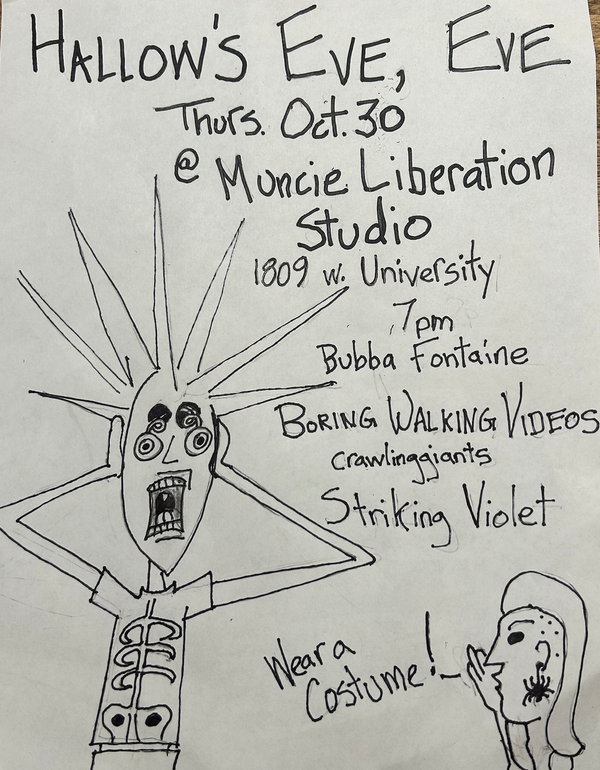 HALLOW'S EVE, EVE
Thurs. Oct. 30
@ Muncie Liberation
Studio
1809 W. University
7pm
Bubba Fontaine
BORING WALKING VIDEOS
crawlinggiants
Striking Violet
Wear a
Costume!